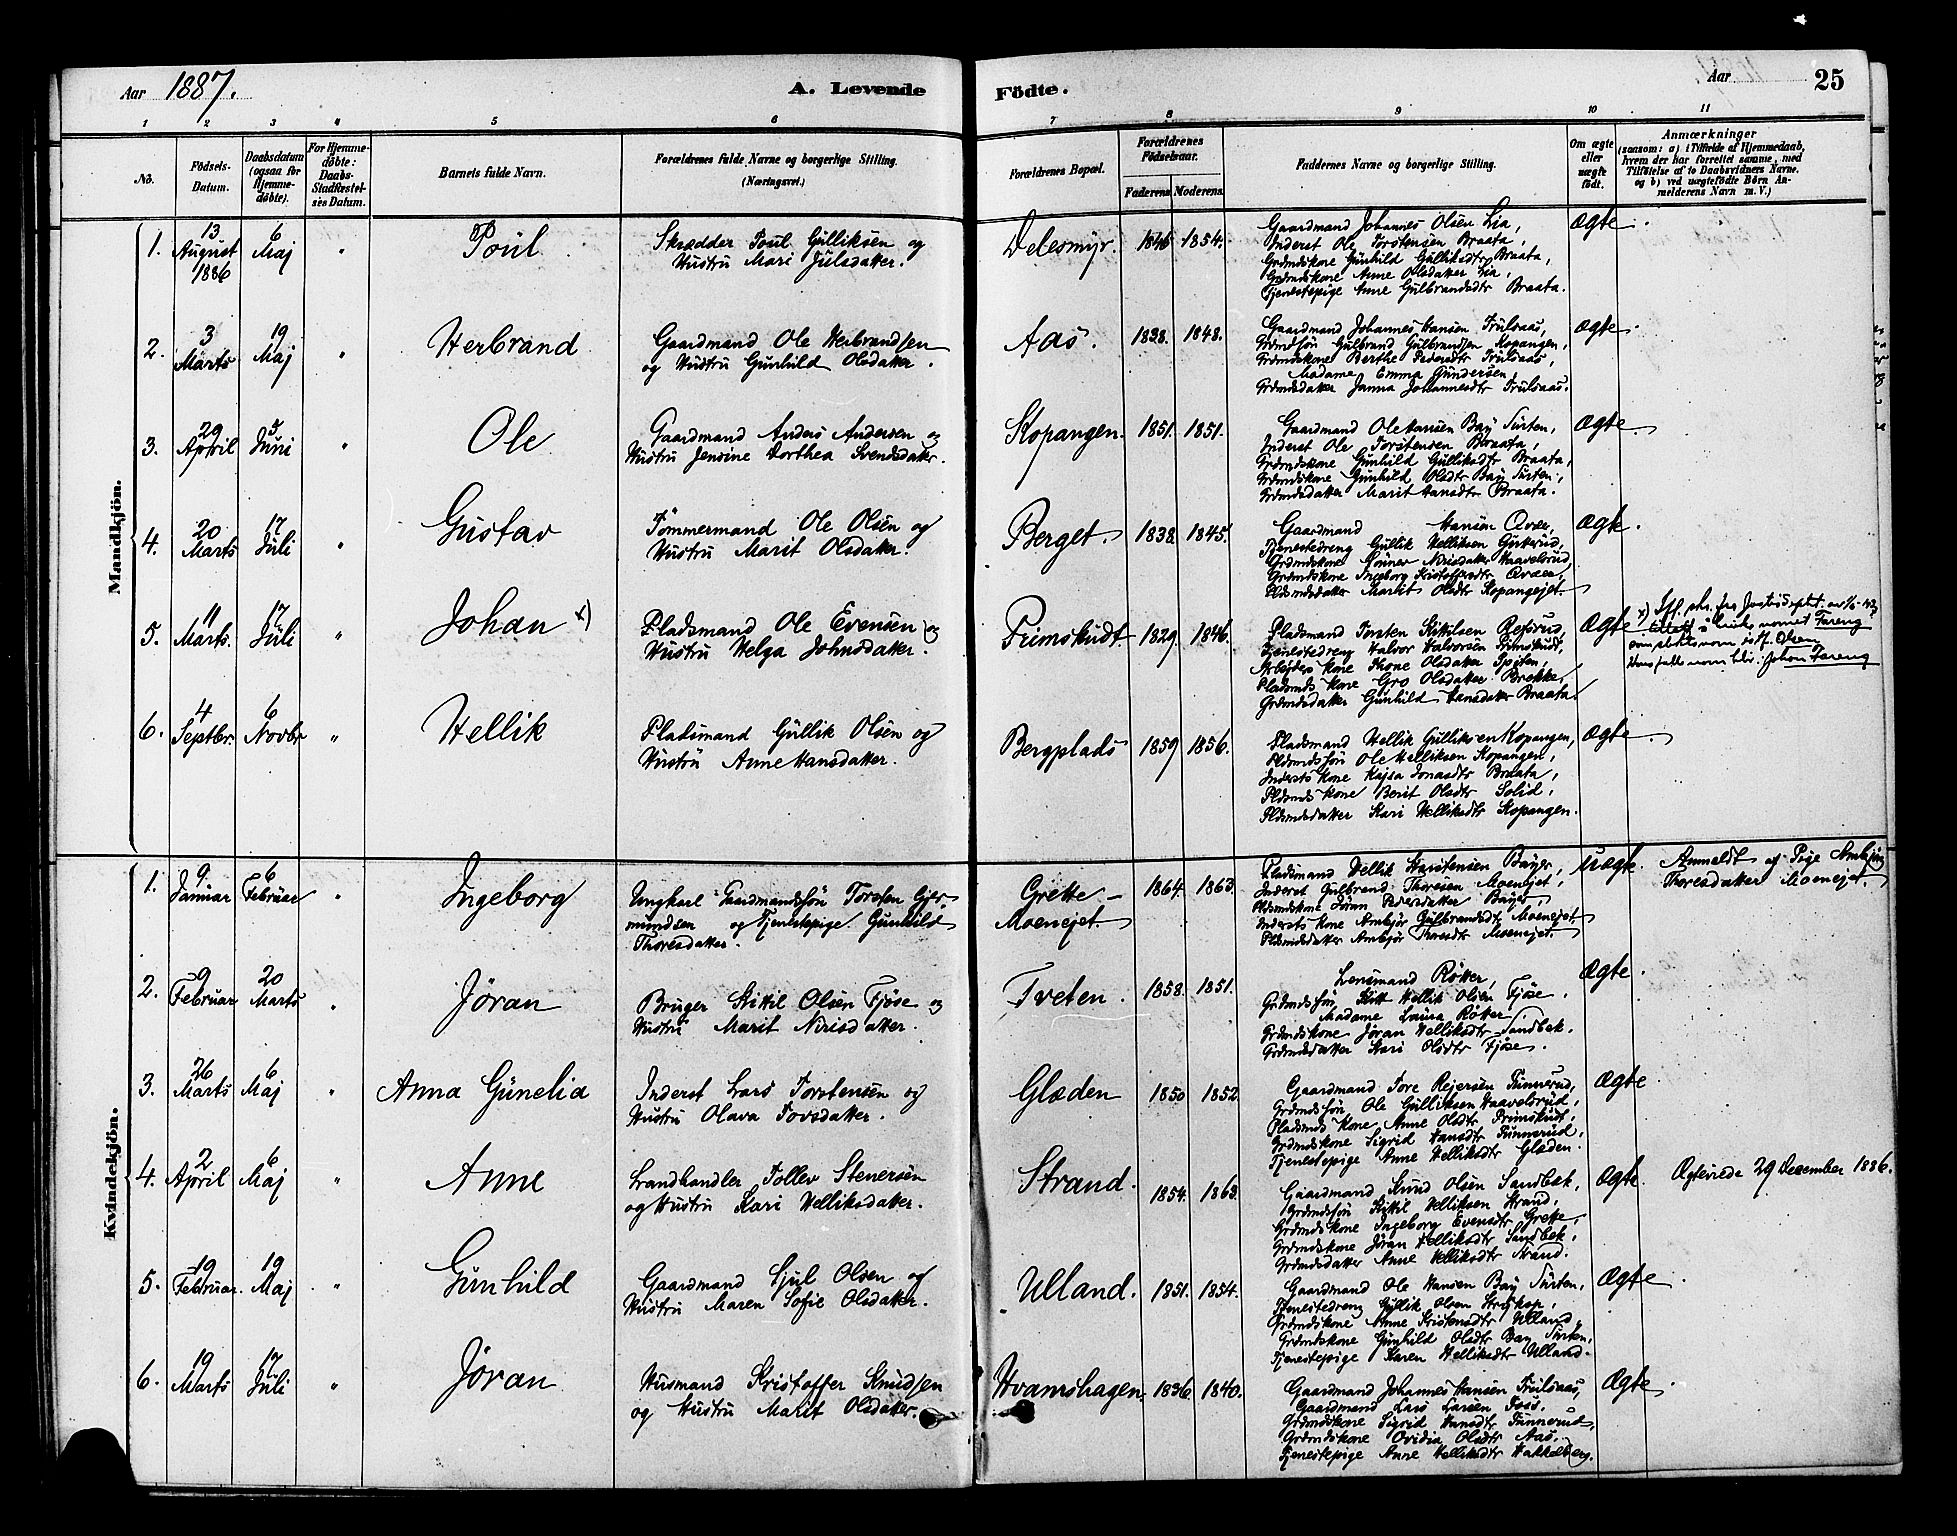 Aar 1887.
A. Levende
Födte.
Aar
25
1 2 3 4 5 6 7 8 9 10 11
No.
Födsels-
Datum.
Daabsdatum
(ogsaa for
Hjemme-
döbte).
For Hjemme-
döbte:
Daabs-
Stadfæstel-
ses Datum.
Barnets fulde Navn.
Forældrenes fulde Navne og borgerlige Stilling.
(Næringsvei.)
Forældrenes Bopæl.
Forældrenes
Födselsaar.
Faderens. Moderens.
Faddernes Navne og borgerlige Stilling.
Om ægte
eller
uægte
födt.
Anmærkninger
(saasom: a) i Tilfælde af Hjemmedaab,
hvem der har forrettet samme, med
Tilföielse af to Daabsvidners Navne.
og b) ved uægtefödte Börn An-
melderens Navn m. V.)
Mandkjön.
1.
13
August
1886
6
Maj
"
Poul
Skrædder Poul Gulliksen og
Hustru Mari Julsdatter.
Delesmyr. 1846 1854.
Gaardmand Johannes Olsen Lia,
Inderst Ole Torstensen Braata,
Grdmdskone Gunhild Gulliksdtr Braata,
Grdmdskone Anne Olsdatter Lia,
Tjenestepige Anne Gulbrandsdtr Braata.
Ægte
2.
3
Marts
19
Maj
"
Herbrand
Gaardmand Ole Herbrandsen
og Hustru Gunhild Olsdatter.
Aas. 1838. 1848.
Gaardmand Johannes Hansen Trulsaas,
Grdmdsøn Gulbrand Gulbrandsen Kopangen,
Grdmdskone Berthe Pedersdtr Trulsaas,
Madame Emma Gundersen,
Grdmdsdatter Janna Johannesdtr Trulsaas.
Ægte.
3.
29
April
5
Juni
"
Ole
Gaardmand Anders Andersen og
Hustru Jensine Dorthea Svendsdatter.
Kopangen. 1851. 1851.
Gaardmand Ole Hansen Bay Turten,
Inderst Ole Torstensen Braata,
Grdmdskone Gunhild Gulliksdtr Braata,
Grdmdskone Gunhild Olsdtr Bay Turten,
Grdmdsdatter Marit Hansdtr Braata.
Ægte.
4.
20
Marts
17
Juli
"
Gustav
Tømmermand Ole Olsen og
Hustru Marit Olsdatter.
Berget 1838. 1845.
Gaardmand Hansen Qvær,
Tjenestedreng Gullik Helliksen
Grdmdskone Nirisdatter Haavelsrud,
Grdmdskone Ingeborg Kristoffersdtr Qvær,
Pldsmdsdatter Marit Olsdtr Kopangejet.
Ægte.
5.
11
Marts.
17
Juli
"
Johan x)
Pladsmand Ole Evensen og
Hustru Helga Johnsdatter.
Frimskudt. 1829. 1846.
Pladsmand Torsten Kittilsen Refsrud,
Tjenestedreng Halvor Halvorsen Frimskudt,
Arbejders Kone Thone Olsdatter
Pladsmds Kone Gro Olsdatter Brekke,
Grdmdsdatter Gunhild Hansdatter Braata.
Ægte
x) Ifl. skr. fra Justisdeptet.
navnet Fareng
som slektsnavn istf. Olsen
Hans fulle navn blir: Johan Fareng
6.
4
Septbr.
6
Novbr
"
Hellik
Pladsmand Gullik Olsen og
Hustru Anne Hansdatter.
Bergplads 1859 1856.
Pladsmand Hellik Gulliksen Kopangen,
Pldsmdsøn Ole Helliksen Kopangen,
Inderstskone Kajsa Jonasdtr Braata,
Pldsmdskone Berit Olsdtr Solid,
Pldsmdsdatter Kari Helliksdtr Kopangen.
Ægte.
Kvindekjön.
1.
9
Januar
6
Februar
"
Ingeborg
Ungkarl Gaardmandsøn Torsten Gjer-
mundsen og Tjenestepige Gunhild
Thoresdatter.
Grette –
Moenejet. 1864. 1863.
Pladsmand Hellik Bøyer,
Inderst Gulbrand Thoresen Moenejet,
Pldsmdskone Jøran Pedersdatter Bøyer
Inderstskone Ambjør Gulbrandsdtr Moenejet
Pldsmdsdatter Ambjør Thoresdtr Moenejet.
Uægte.
Anmeldt af Pige Ambjør
Thoresdatter Moenejet.
2.
9
Februar
20
Marts
"
Jøran
Bruger Kittil Olsen Fjøse og
Hustru Marit Nirisdatter.
Tveten. 1858. 1851.
Lensmand Røtter,
Grdmdsøn Hellik Olsen Fjøse.
Madame Laura Røtter
Grdmdskone Jøran Helliksdtr Sandbek.
Grdmdsdatter Kari Olsdtr Fjøse.
Ægte.
3.
26
Marts
6
Maj
"
Anna Gunelia
Inderst Lars Torstensen og
Hustru Olava Tovsdatter.
Glæden 1850 1852.
Gaardmand Tore Rejersen Tunnerud,
Grdmdsøn Ole Gulliksen Haavelsrud,
Pladsmds Kone Anne Olsdtr Frimskudt,
Grdmdskone Sigrid Hansdtr Tunnerud,
Tjenestepige Anne Helliksdtr Glæden.
Ægte
4.
2
April
6
Maj
"
Anne
Landhandler Tollev Stenersen
og Hustru Kari Helliksdatter.
Strand. 1854. 1863.
Gaardmand Knud Olsen Sandbek,
Grdmdsøn Kittil Helliksen Strand,
Grdmdskone Ingeborg Evensdtr Grette,
Grdmdskone Jøran Helliksdtr Sandbek,
Grdmdsdatter Anne Helliksdtr Strand.
Ægte
Ægteviede 29 December 1886.
5.
19
Februar.
19
Maj
"
Gunhild
Gaardmand Sjul Olsen og
Hustru Maren Sofie Olsdatter.
Ulland. 1851. 1854.
Gaardmand Ole Hansen Bay Turten,
Tjenestedreng Gullik Olsen
Grdmdskone Anne Kristensdtr Ulland,
Grdmdskone Gunhild Olsdtr Bay Turten,
Tjenestepige Karen Helliksdtr Ulland.
Ægte
6.
19
Marts
17
Juli
"
Jøran
Husmand Kristoffer Knudsen
og Hustru Marit Olsdatter.
Hvamshagen. 1836. 1840.
Gaardmand Johannes Hansen Trulsaas,
Gaardmand Lars Larsen Foss,
Grdmdskone Sigrid Hansdtr Tunnerud,
Grdmdskone Ovidia Olsdtr Aas,
Tjenestepige Anne Helliksdtr Hakkelberg.
Ægte